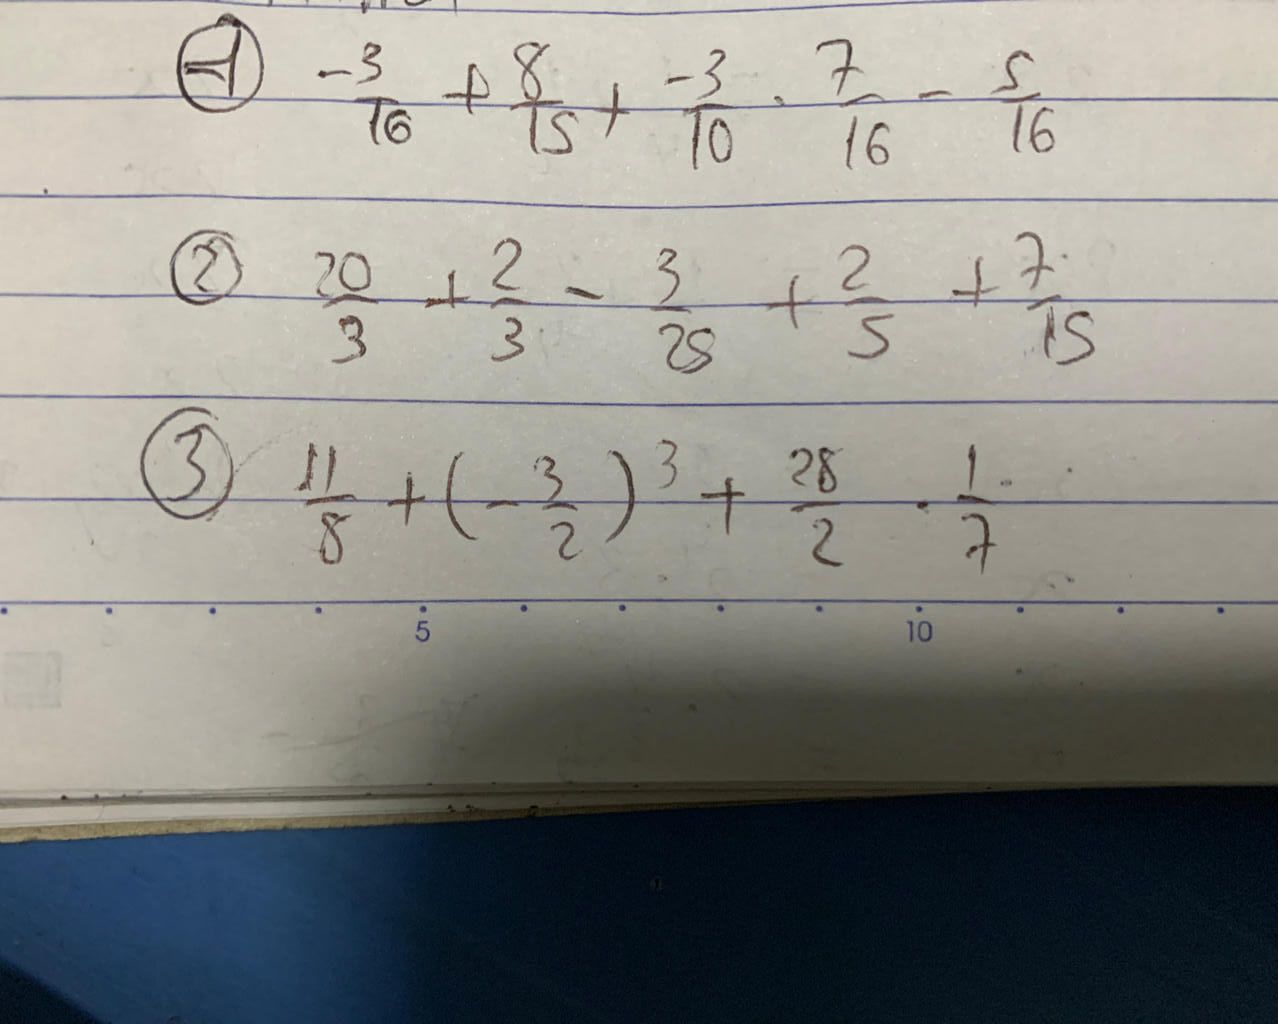 ① -3/16 + 8/15 + -3/10 . 7/16 - 5/16
② 20/3 + 2/3 - 3/25 + 2/5 + 7/15
③ 11/8 + (-3/2)^3 + 28/2 . 1/7
5 10